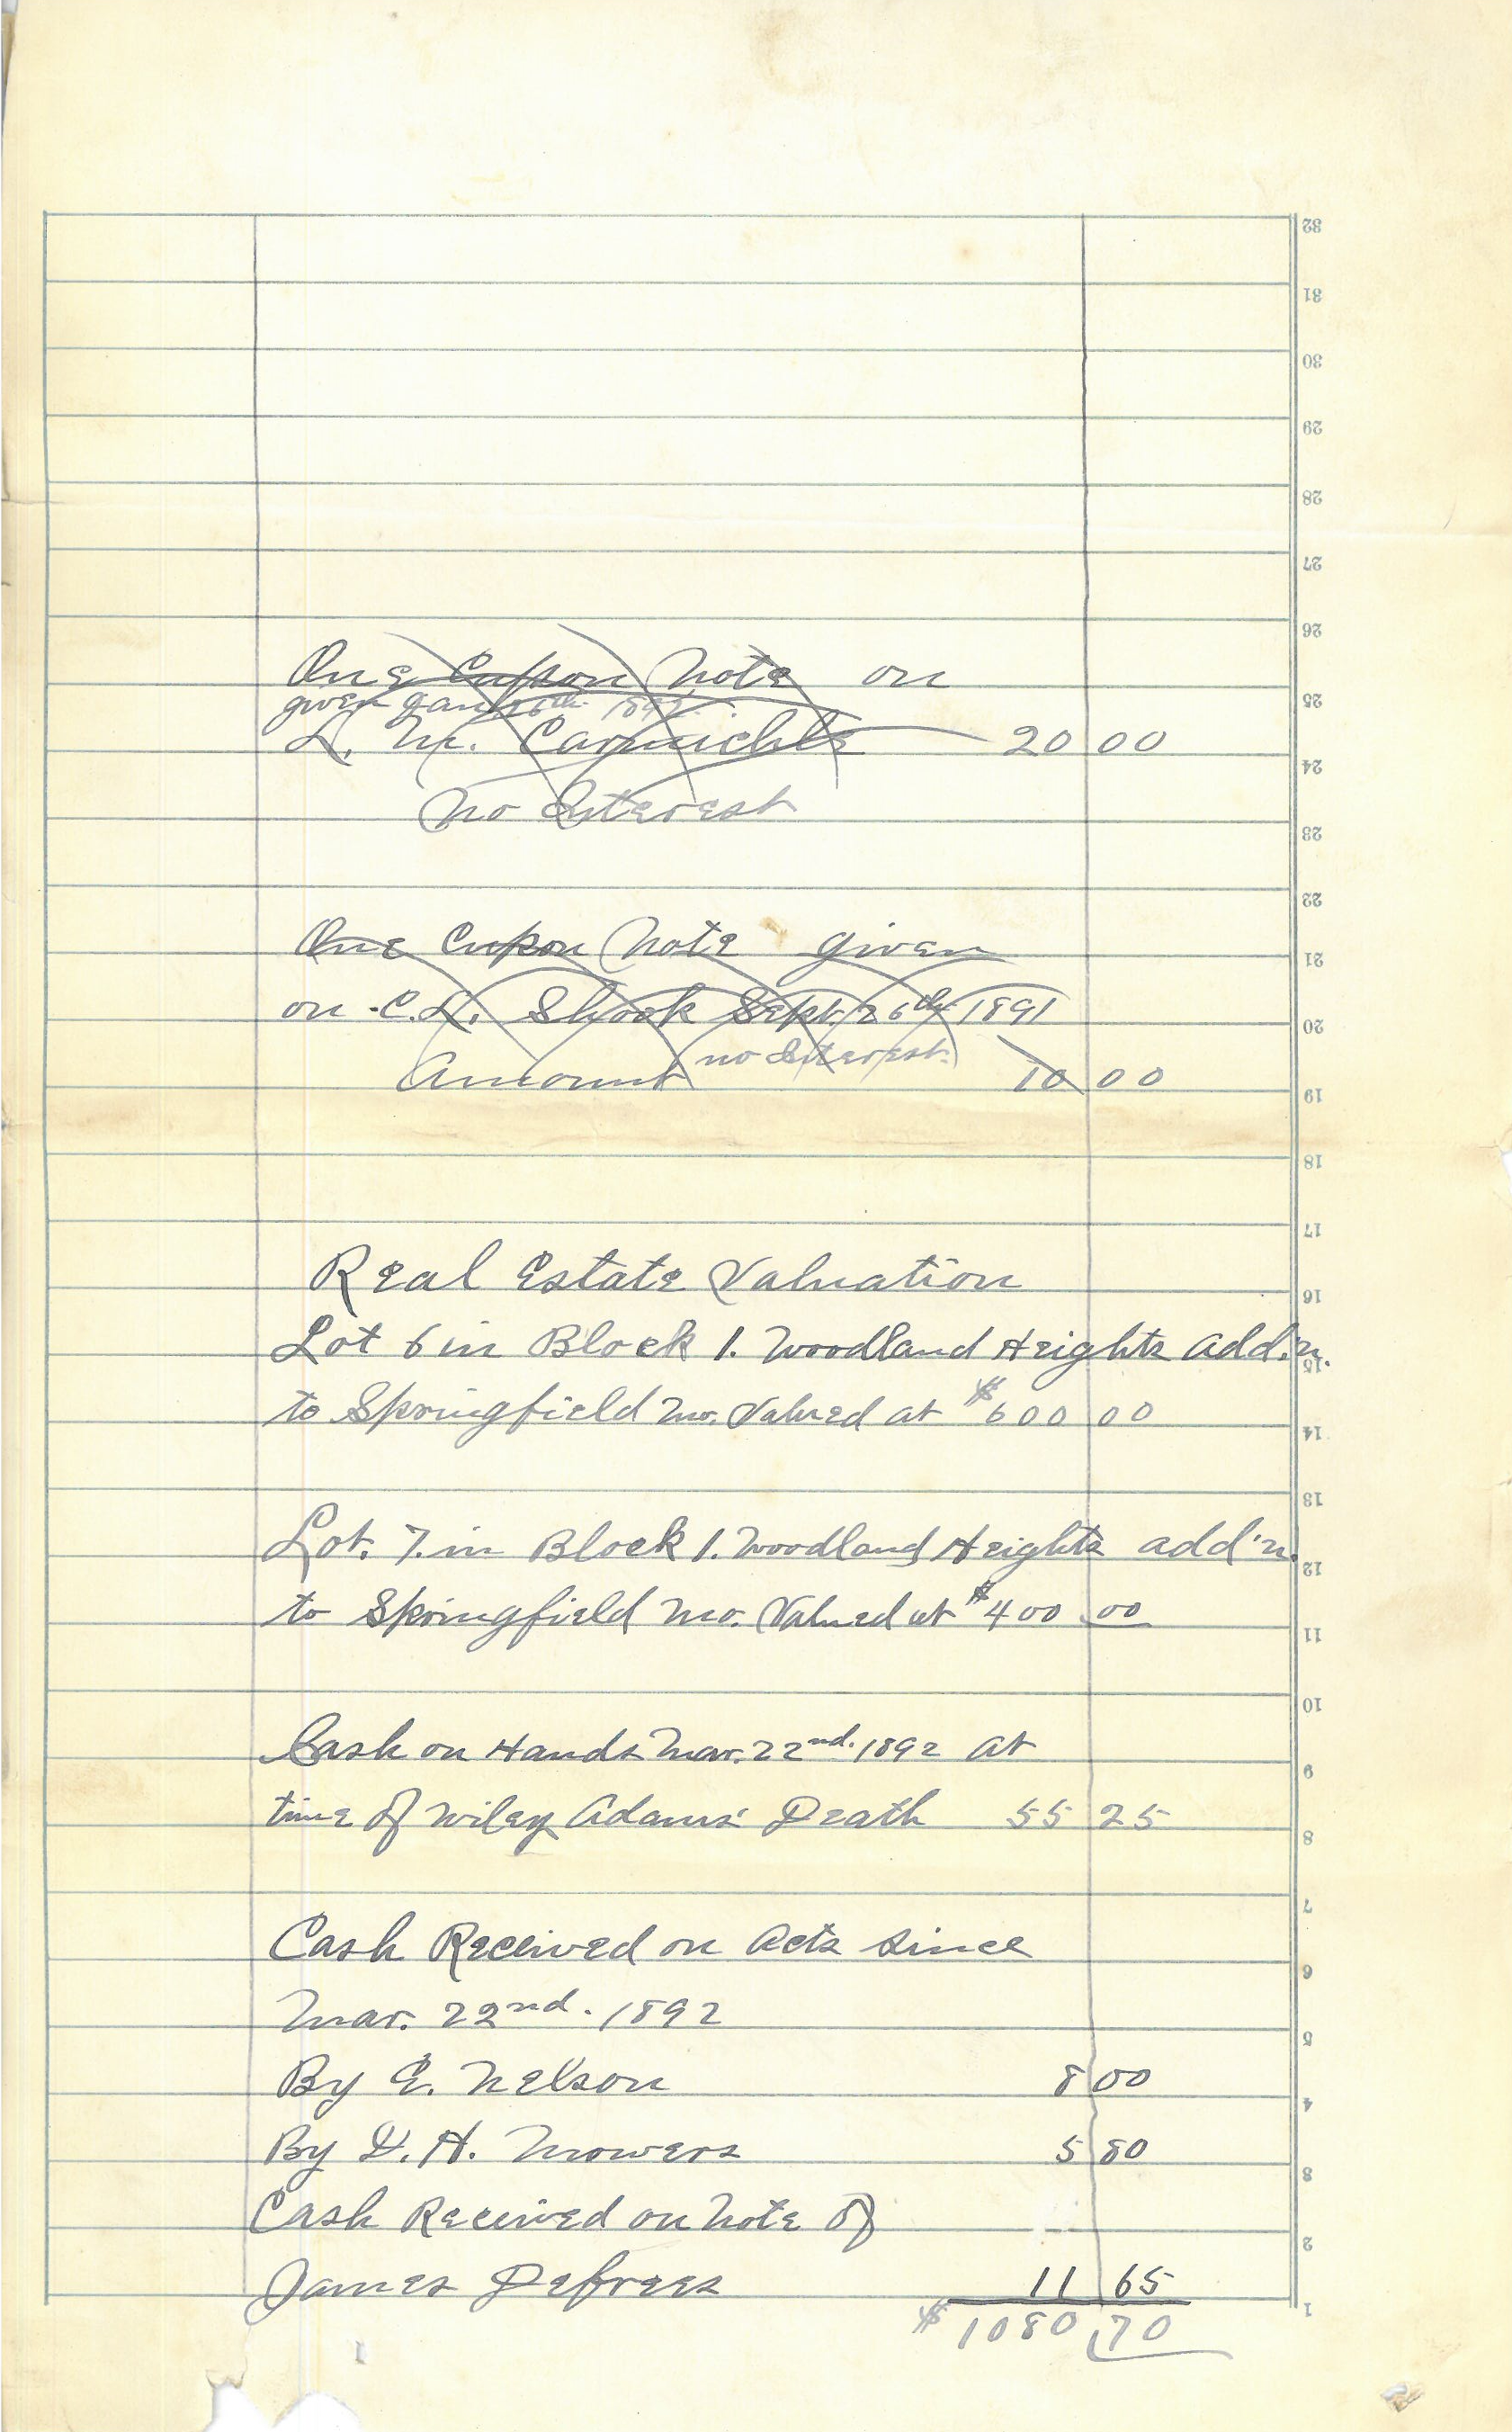 32
31
30
29
28
27
26
One Cupon Note on
25
given Jan 26th 1892.
L. M. Carmichle 20 00
24
No Interest
23
22
One Cupon Note given
21
on C.L. Shook Sept. 26th 1891
20
Amount no Interest. 10 00
19
18
17
Real Estate Valuation
16
Lot 6 in Block 1. Woodland Heights add'n.
15
to Springfield Mo. Valued at $600 00
14
13
Lot. 7. in Block 1. Woodland Heights add'n.
12
to Springfield Mo. Valued at $400 00
11
10
Cash on Hands Mar. 22nd. 1892 at
9
time of Wiley Adams' Death 55 25
8
7
Cash Received on Acts since
6
Mar. 22nd. 1892
5
By E. Nelson 8 00
4
By D. H. Mowers 5 80
3
Cash Received on Note of
2
James Defrees 11 65
1
$1080 70